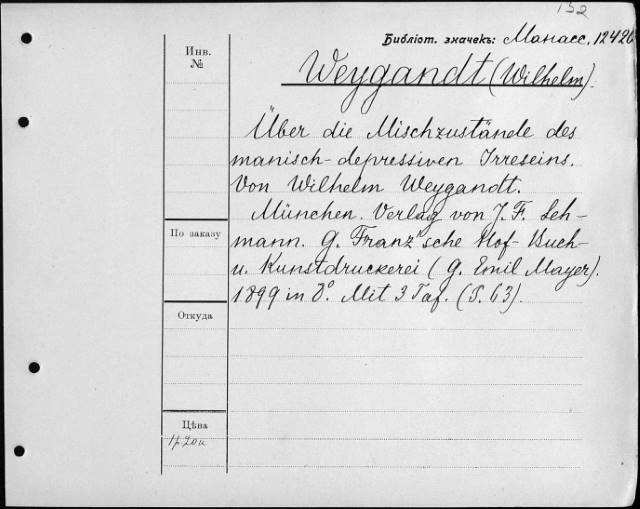 132
Библіот. значекъ: Манасс. 12420
Инв.
№
Weygandt (Wilhelm).
Über die Mischzustände des
manisch-depressiven Irreseins.
Von Wilhelm Weygandt.
München. Verlag von J. F. Leh-
По заказу
mann. G. Franz'sche Hof-Buch-
u. Kunstdruckerei (G. Emil Mayer).
1899 in 8°. Mit 3 Taf. (S. 63).
Откуда
Цѣна
1р 20к